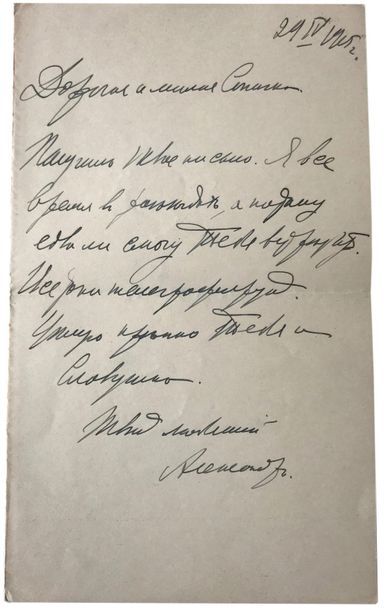 29 IV 1915 г.
Дорогая и милая Сонечка.
Получилъ твое письмо. Я все
время въ разъездахъ, а потому
едва ли смогу Тебя
телеграфируй.
Целую крепко Тебя и
Славушку.
Твой любящий
Александръ.